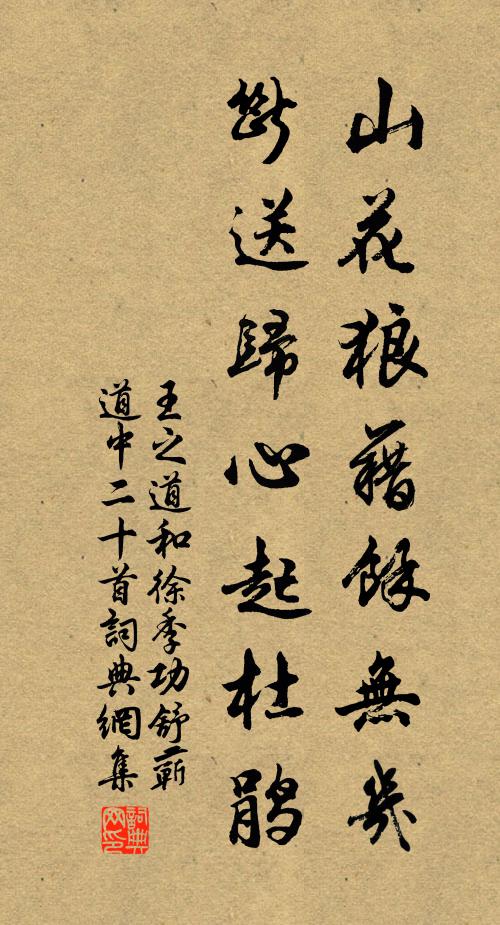 山花狼藉餘無幾
斷送歸心起杜鵑
王之道和徐季功舒蘄
道中二十首詞典網集
詞典
网印